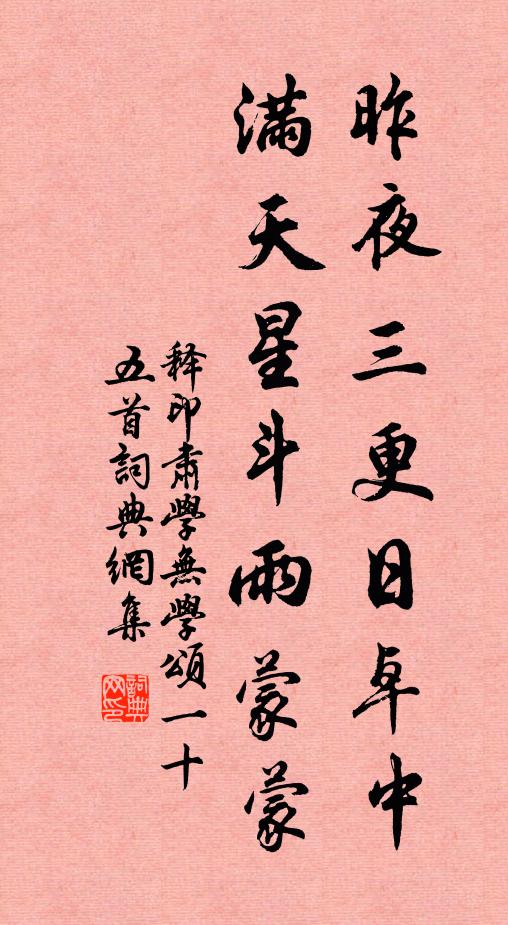 昨夜三更日卓中
滿天星斗雨蒙蒙
释印肅學無學頌一十
五首詞典網集
詞典
网印